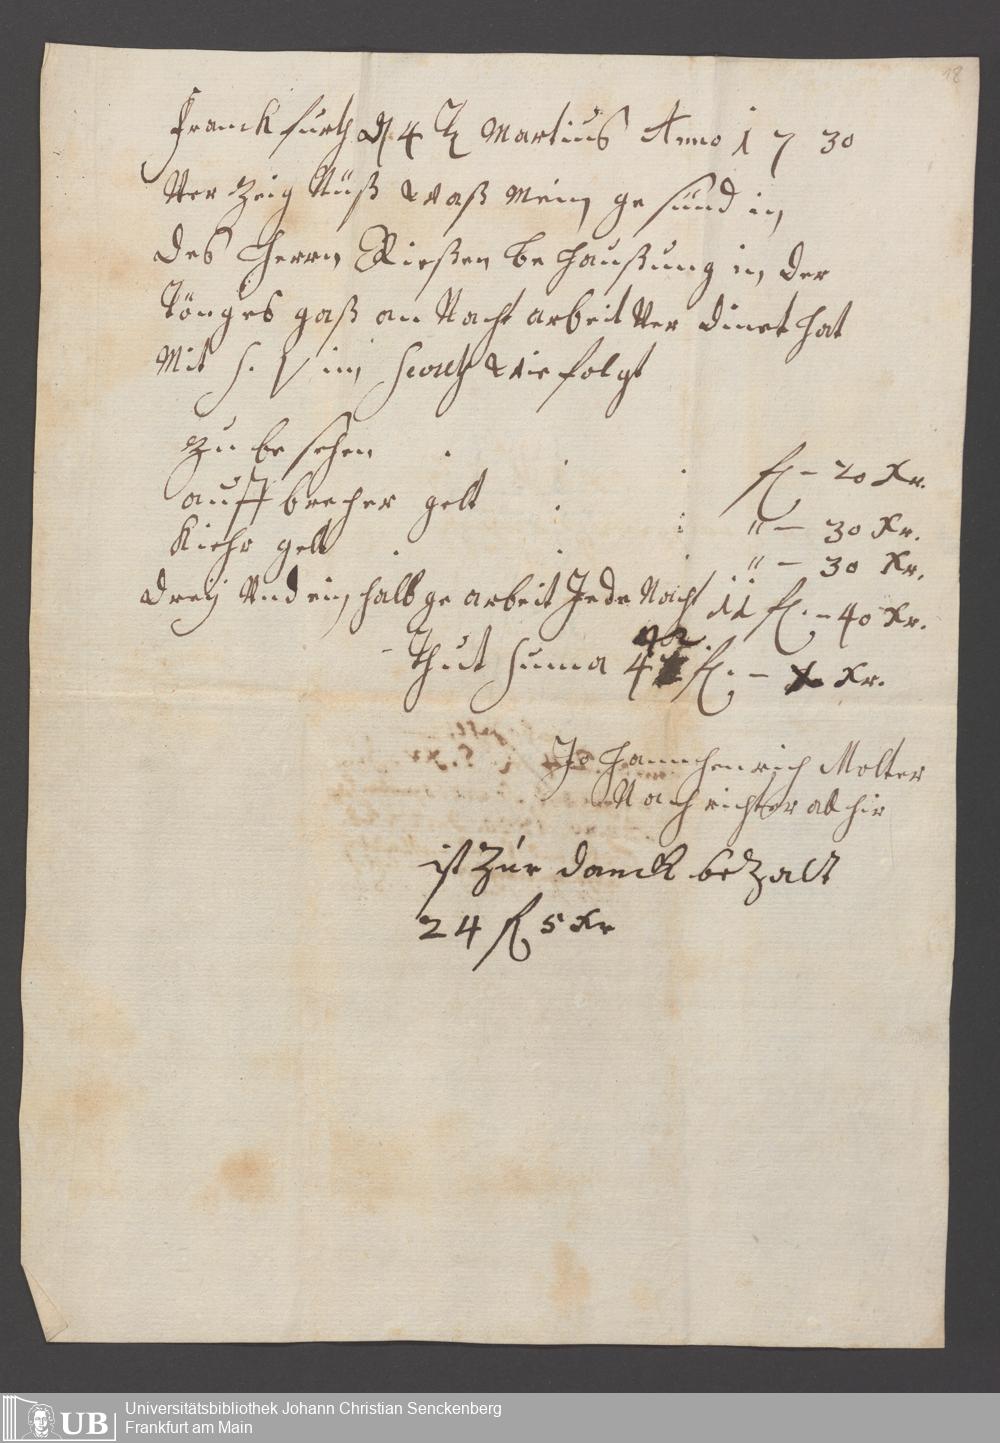 18
Franckfurth d 4 t Martius Anno 1730
Verzeignüß waß mein gesind in
des Herrn Rießen behaußung in der
Tönges gaß an Nacht arbeit Ver dinet hat
Mit s. v im wie folgt
zu besehen . . . f – 20 Xr.
auff brecher gelt . : " – 30 Xr.
Kiehr gelt . . . " – 30 Xr.
dreij Und ein halb ge arbeit Jede Nacht 11 f. – 40 Xr.
Thut Suma 42 f. – Xr.
Johann henrich Molter
Nachrichter alhir
ist zur danck bezalt
24 f 5 Xr
UB Universitätsbibliothek Johann Christian Senckenberg
Frankfurt am Main